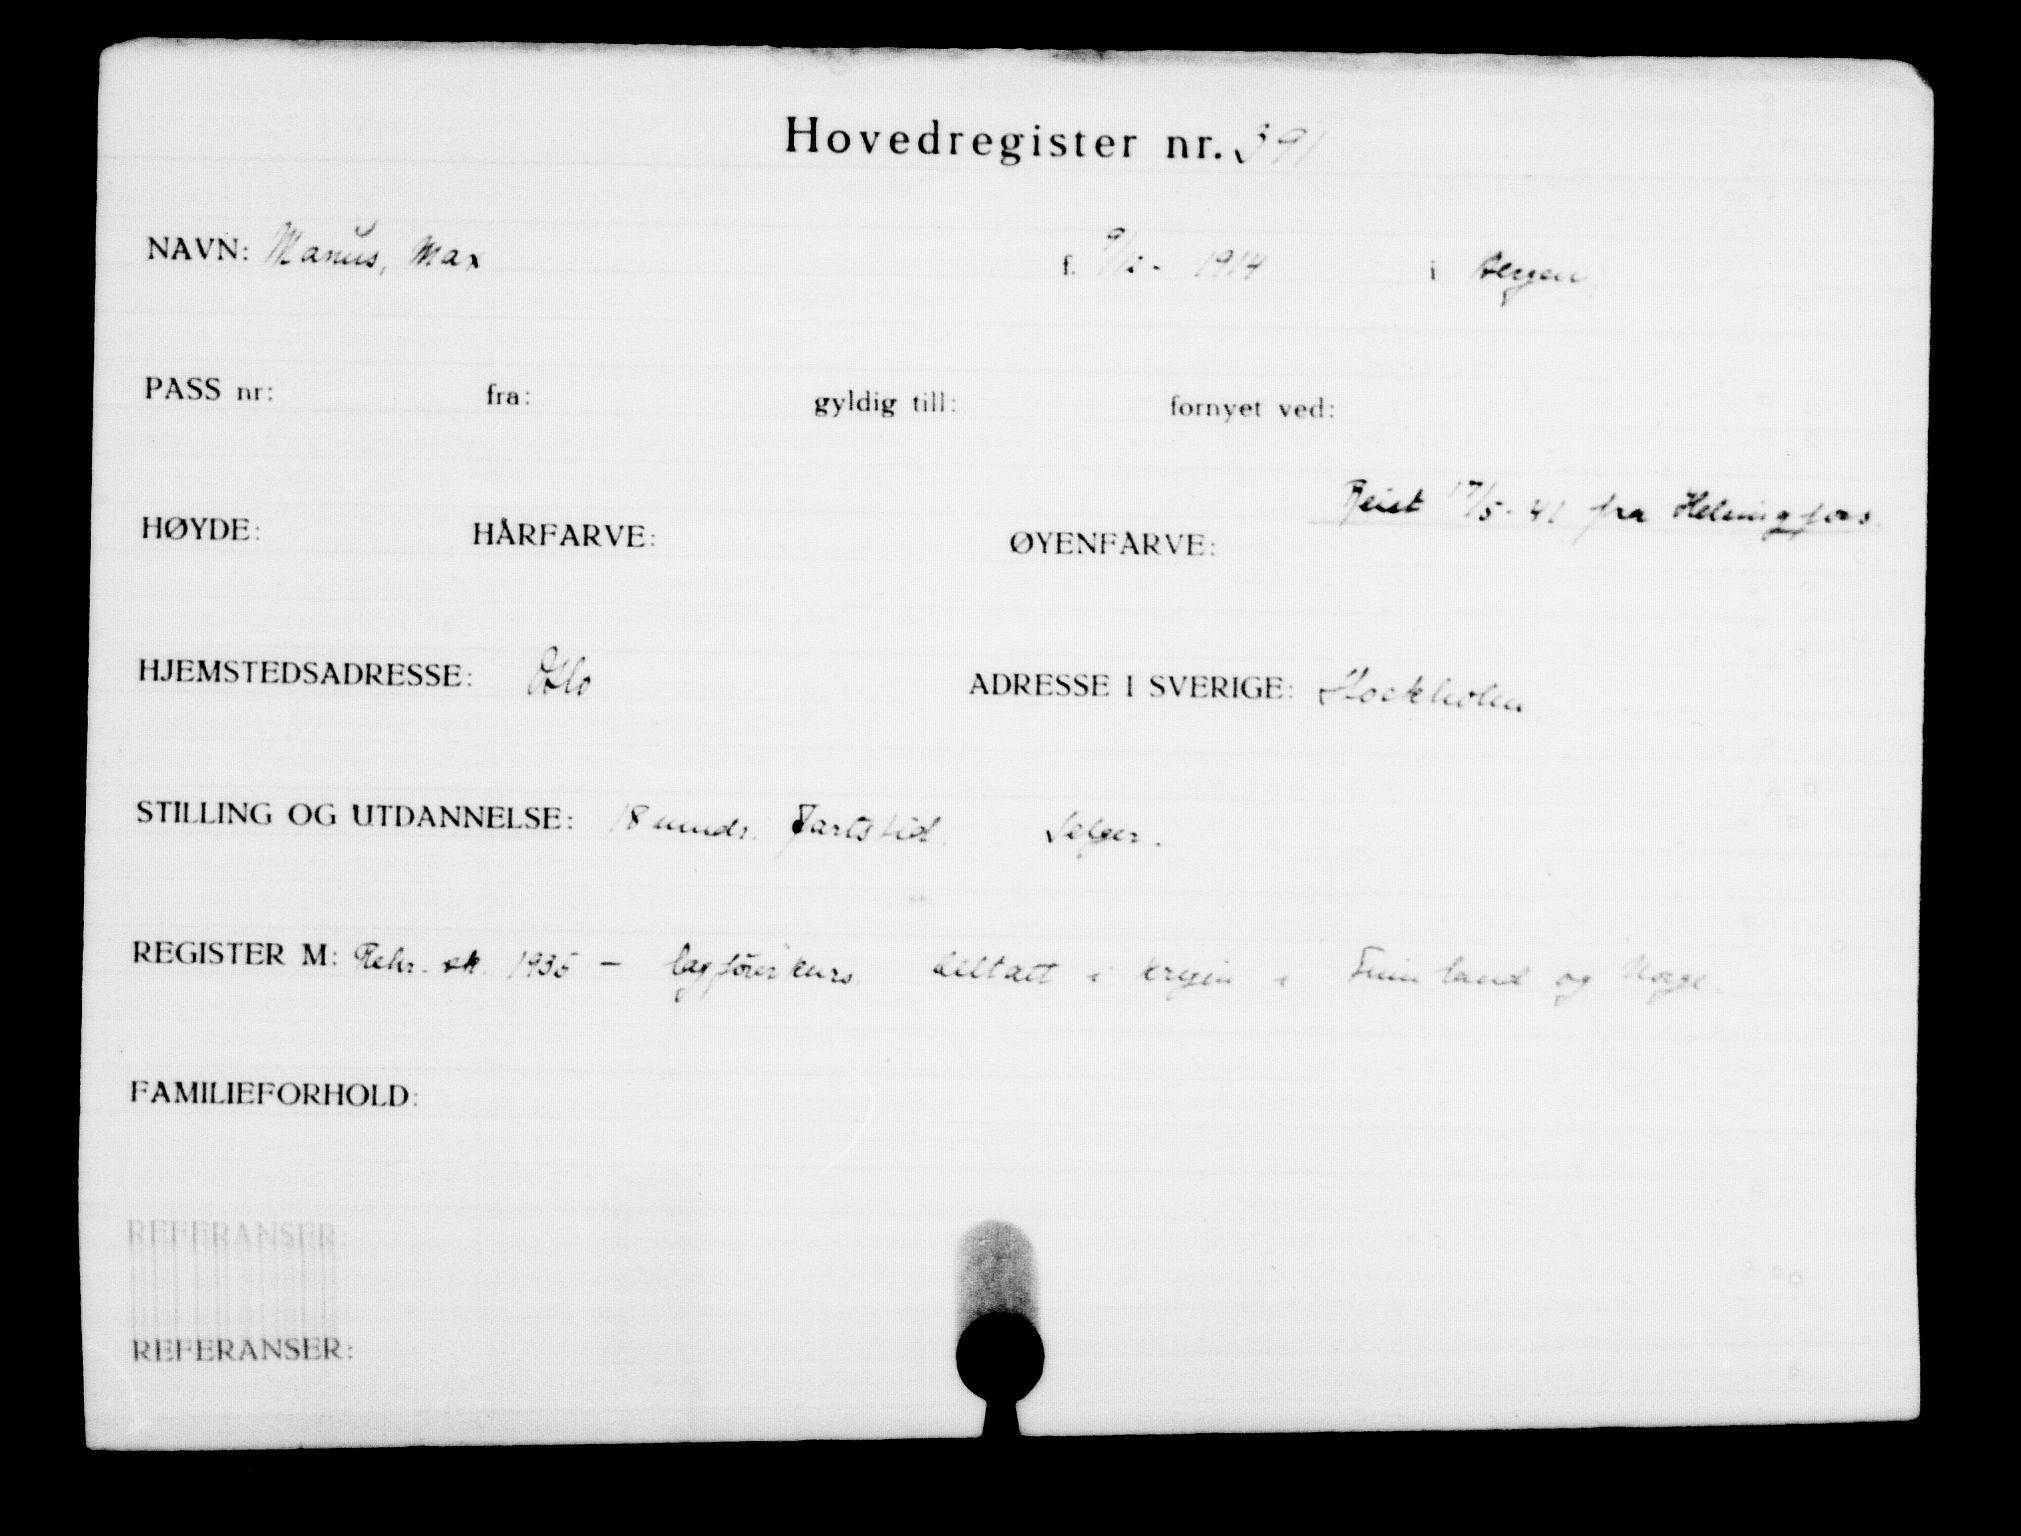 Hovedregister nr. 391
NAVN: Manus, Max f. 9/12- 1914 i Bergen
PASS nr: fra: gyldig till: fornyet ved:
Reist 17/5-41 fra Helsingfors.
HØYDE: HÅRFARVE: ØYENFARVE:
HJEMSTEDSADRESSE: Oslo ADRESSE I SVERIGE: Stockholm
STILLING OG UTDANNELSE: 18 mndr. Fartstid. Selger.
REGISTER M: Rekr. sk. 1935 — lagførerkurs. deltatt i krigen i Finnland og Norge.
FAMILIEFORHOLD:
REFERANSER:
REFERANSER: